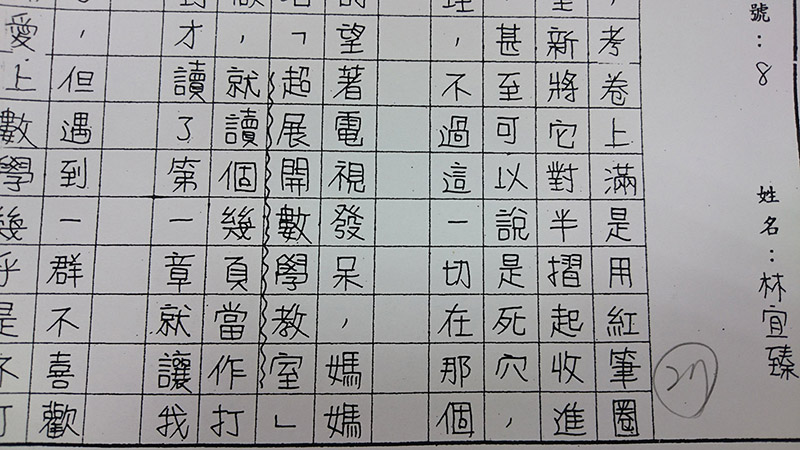 號：8
姓名：林宜臻
27
，考卷上滿是用紅筆圈
新將它對半摺起收進
甚至可以說是死穴，
理，不過這一切在那個
望著電視發呆，媽媽
「超展開數學教室」
，就讀個幾頁當作打
才讀了第一章就讓我打
，但遇到一群不喜歡
愛上數學幾乎是不打